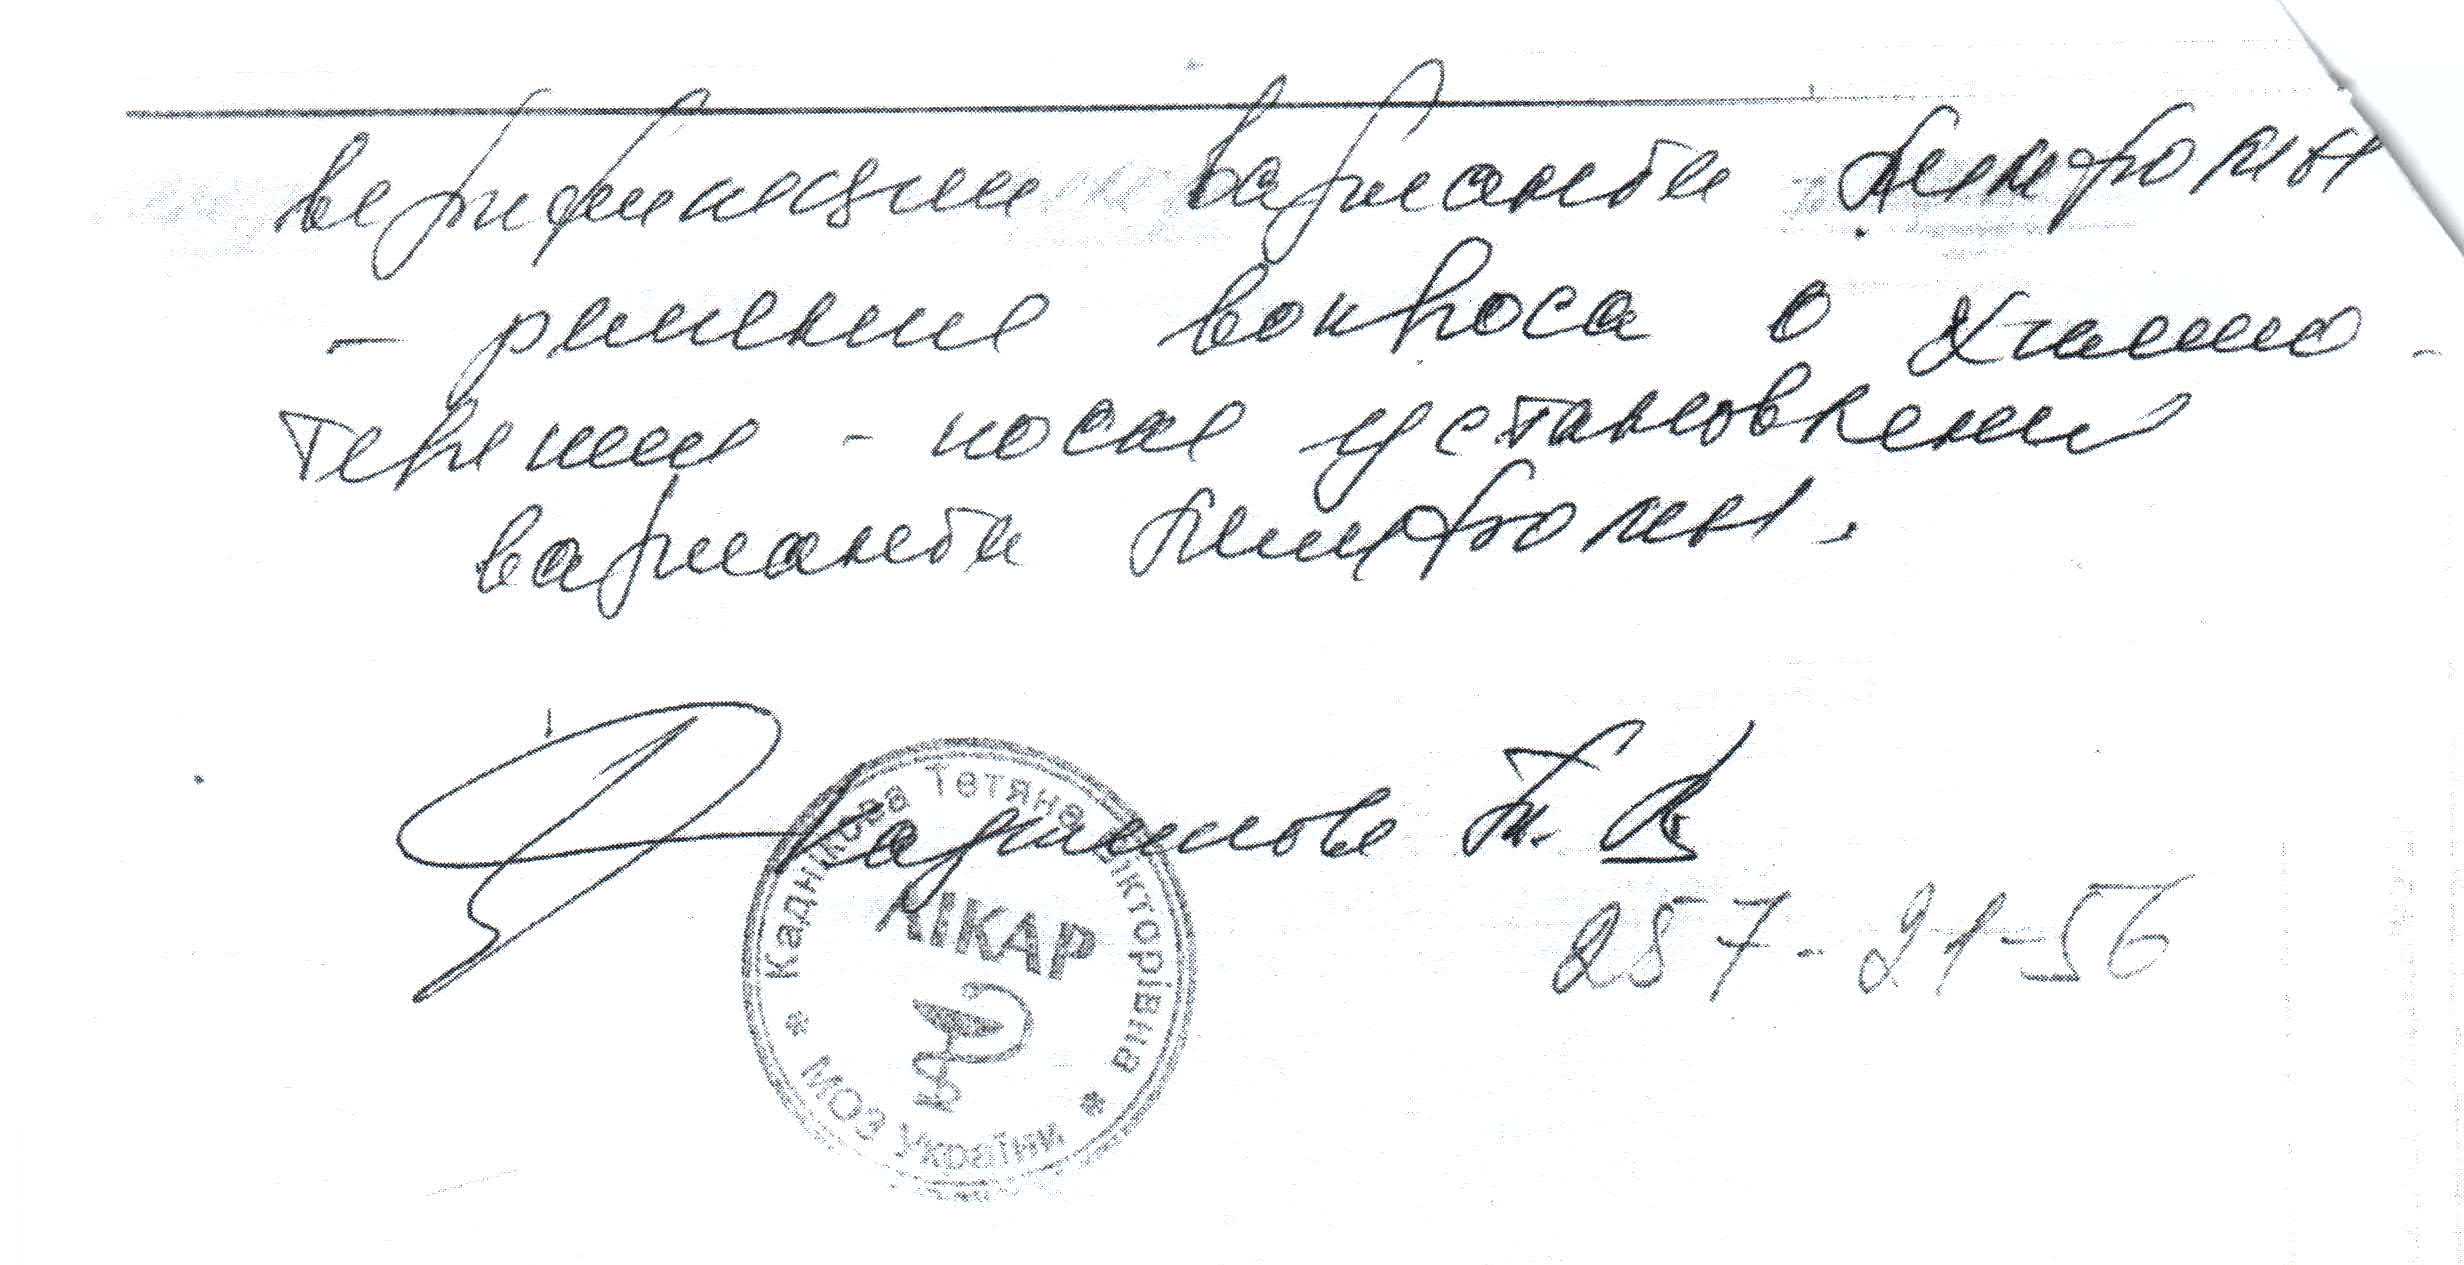 верификации варианта лимфомы
- решение вопроса о химио-
терапии - после установления
варианта лимфомы.
Кадникова Т. В
257-21-56
Каднікова Тетяна Вікторівна
ЛІКАР
* МОЗ України *